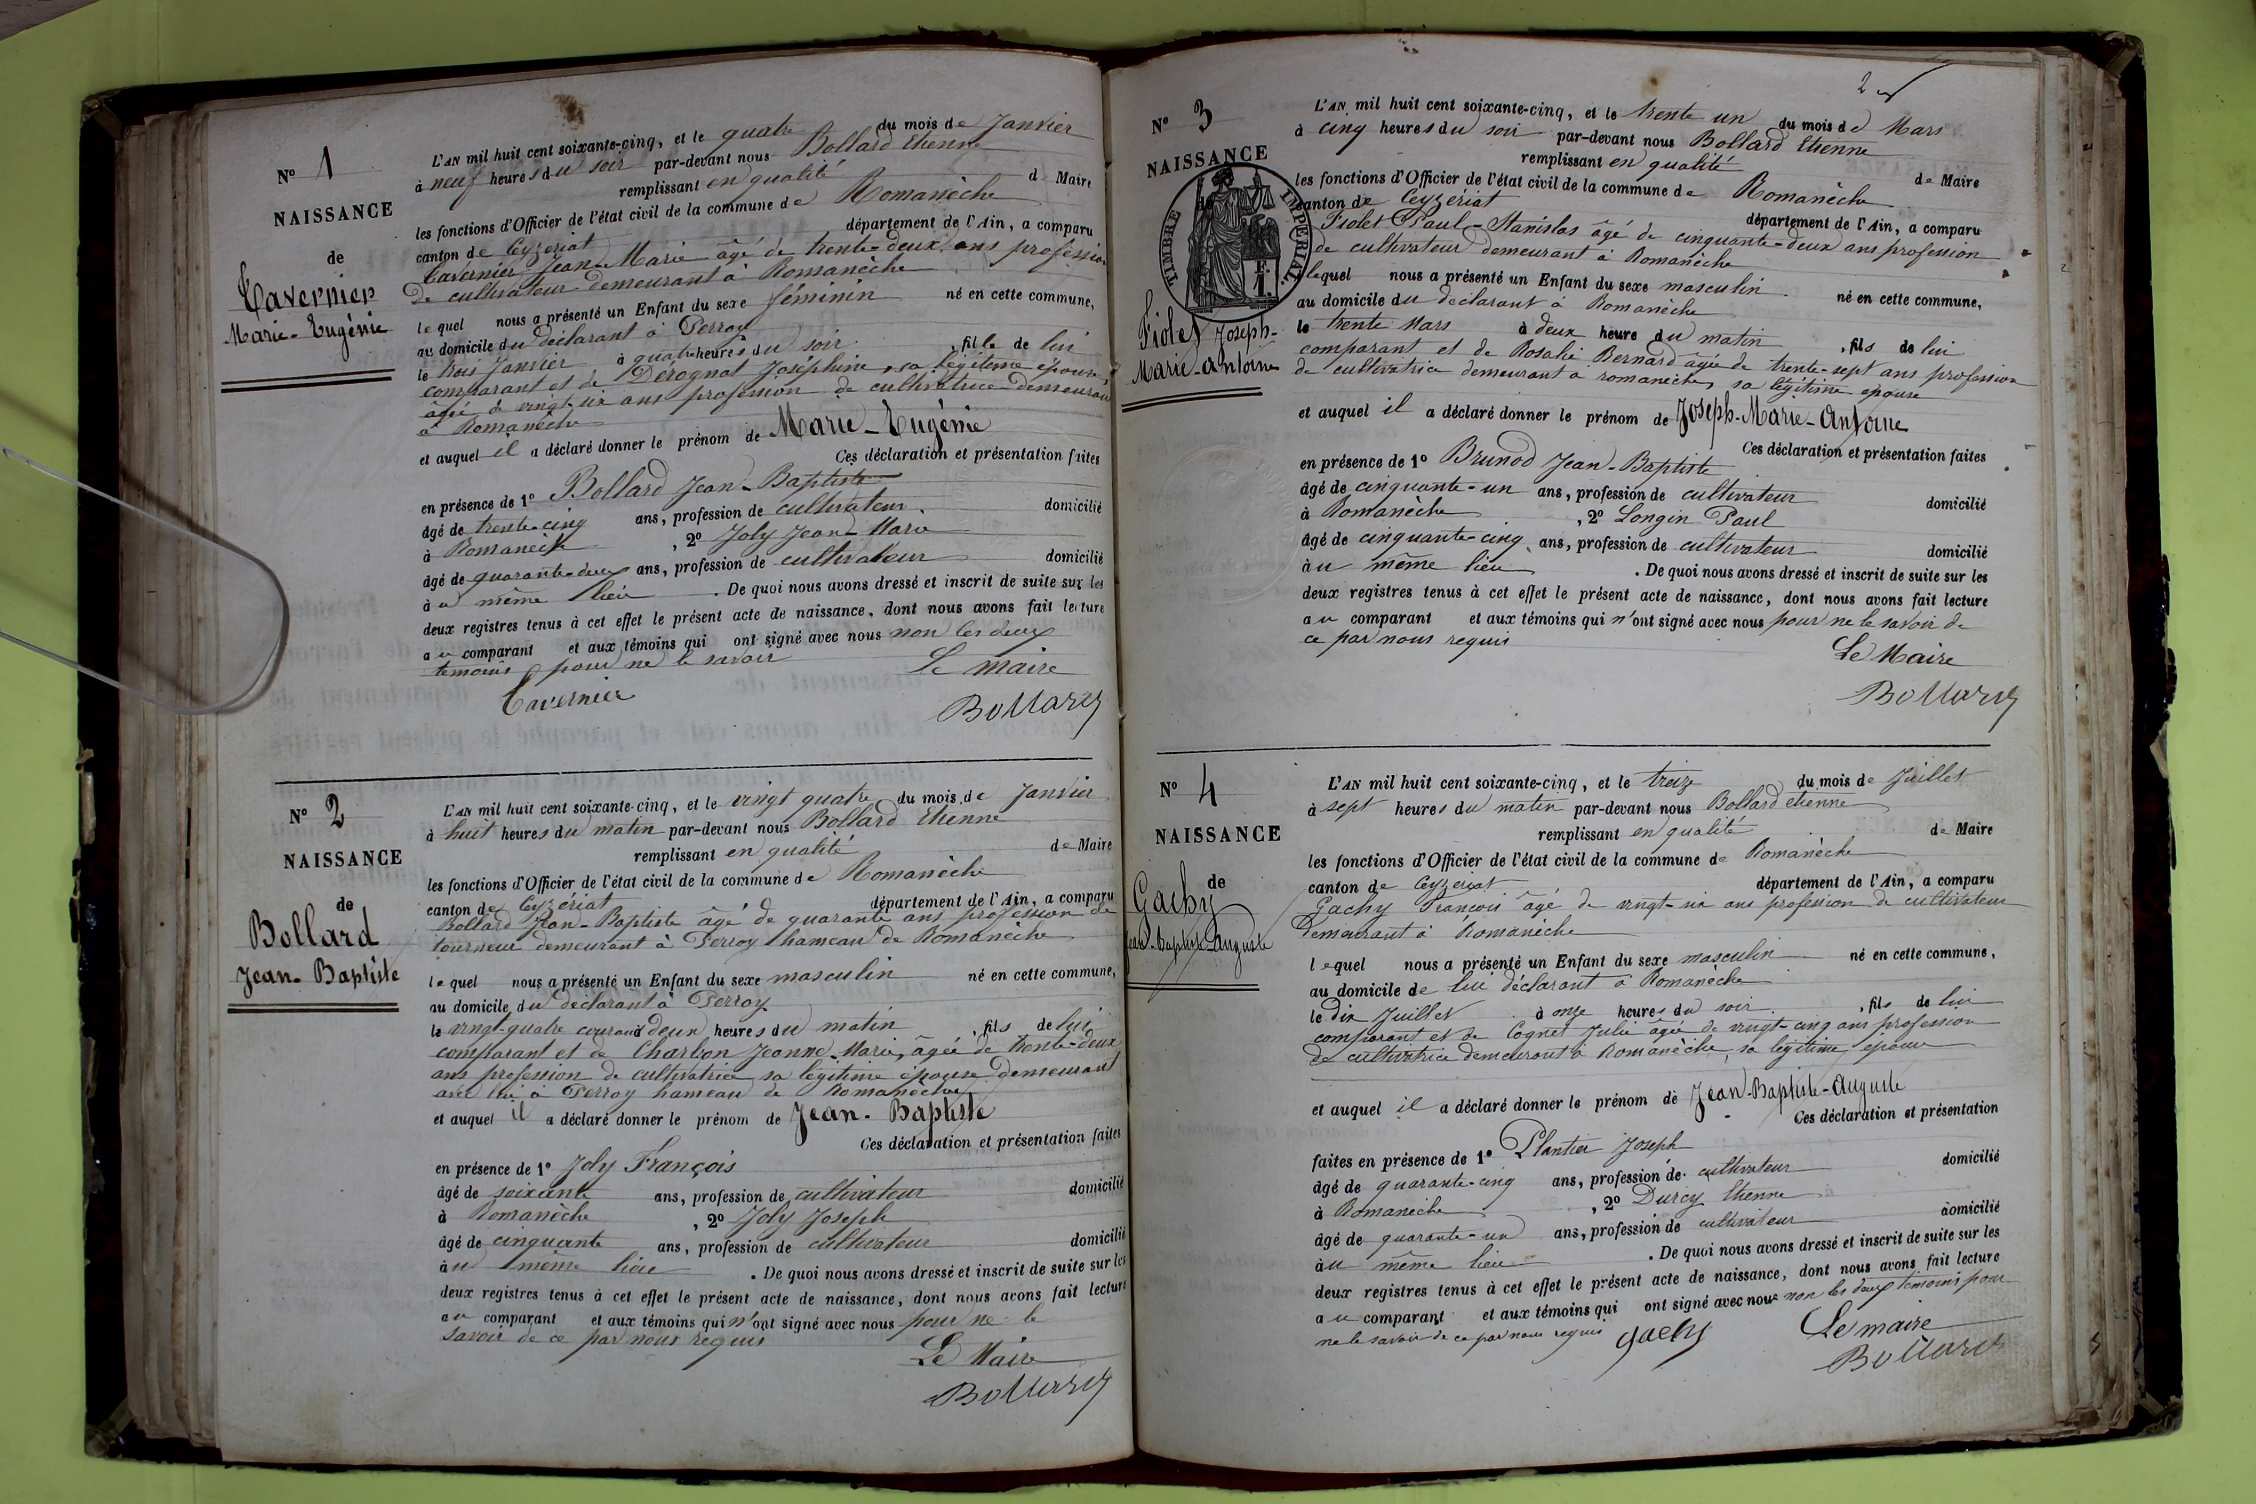 N° 1
NAISSANCE
de
Tavernier
Marie-Eugénie
L'AN mil huit cent soixante-cinq, et le quatre du mois de Janvier
à neuf heures du soir par-devant nous Bollard Etienne
remplissant en qualité de Maire
les fonctions d'Officier de l'état civil de la commune de Romanèche
canton de Ceyzeriat département de l'Ain, a comparu
Tavernier Jean-Marie âgé de trente-deux ans profession
de cultivateur demeurant à Romanèche
lequel nous a présenté un Enfant du sexe féminin né en cette commune,
au domicile du déclarant à Perroy
le trois Janvier à quatre heures du soir, fille de lui
comparant et de Derognat Joséphine, sa légitime épouse,
âgée de vingt-six ans profession de cultivatrice demeurant
à Romanèche
et auquel il a déclaré donner le prénom de Marie-Eugénie
Ces déclaration et présentation faites
en présence de 1° Bollard Jean-Baptiste
âgé de trente-cinq ans, profession de cultivateur domicilié
à Romanèche, 2° Joly Jean-Marie
âgé de quarante-deux ans, profession de cultivateur domicilié
au même lieu. De quoi nous avons dressé et inscrit de suite sur les
deux registres tenus à cet effet le présent acte de naissance, dont nous avons fait lecture
au comparant et aux témoins qui ont signé avec nous non les deux
témoins pour ne le savoir
Le maire
Tavernier
Bollard
N° 2
NAISSANCE
de
Bollard
Jean-Baptiste
L'AN mil huit cent soixante-cinq, et le vingt quatre du mois de Janvier
à huit heures du matin par-devant nous Bollard Etienne
remplissant en qualité de Maire
les fonctions d'Officier de l'état civil de la commune de Romanèche
canton de Ceyzériat département de l'Ain, a comparu
Bollard Jean-Baptiste âgé de quarante ans profession de
tourneur demeurant à Perroy hameau de Romanèche
lequel nous a présenté un Enfant du sexe masculin né en cette commune,
au domicile du déclarant à Perroy
le vingt-quatre courant à deux heures du matin, fils de lui
comparant et de Charbon Jeanne-Marie, âgée de trente-deux
ans profession de cultivatrice sa légitime épouse demeurant
avec lui à Perroy hameau de Romanèche
et auquel il a déclaré donner le prénom de Jean-Baptiste
Ces déclaration et présentation faites
en présence de 1° Joly François
âgé de soixante ans, profession de cultivateur domicilié
à Romanèche, 2° Joly Joseph
âgé de cinquante ans, profession de cultivateur domicilié
au même lieu. De quoi nous avons dressé et inscrit de suite sur les
deux registres tenus à cet effet le présent acte de naissance, dont nous avons fait lecture
au comparant et aux témoins qui n'ont signé avec nous pour ne le
savoir de ce par nous requis
Le Maire
Bollard
2
N° 3
NAISSANCE
TIMBRE IMPÉRIAL
Fiolet Joseph-
Marie-Antoine
L'AN mil huit cent soixante-cinq, et le trente un du mois de Mars
à cinq heures du soir par-devant nous Bollard Etienne
remplissant en qualité de Maire
les fonctions d'Officier de l'état civil de la commune de Romanèche
canton de Ceyzériat département de l'Ain, a comparu
Fiolet Paul-Stanislas âgé de cinquante-deux ans profession
de cultivateur demeurant à Romanèche
lequel nous a présenté un Enfant du sexe masculin né en cette commune,
au domicile du déclarant à Romanèche
le trente Mars à deux heure du matin, fils de lui
comparant et de Rosalie Bernard âgée de trente-sept ans profession
de cultivatrice demeurant à romanèche, sa légitime épouse
et auquel il a déclaré donner le prénom de Joseph-Marie-Antoine
Ces déclaration et présentation faites
en présence de 1° Brunod Jean-Baptiste
âgé de cinquante-un ans, profession de cultivateur domicilié
à Romanèche, 2° Longin Paul
âgé de cinquante-cinq ans, profession de cultivateur domicilié
au même lieu. De quoi nous avons dressé et inscrit de suite sur les
deux registres tenus à cet effet le présent acte de naissance, dont nous avons fait lecture
au comparant et aux témoins qui n'ont signé avec nous pour ne le savoir de
ce par nous requis
Le Maire
Bollard
N° 4
NAISSANCE
de
Gachy
Jean-Baptiste Auguste
L'AN mil huit cent soixante-cinq, et le treize du mois de Juillet
à sept heures du matin par-devant nous Bollard etienne
remplissant en qualité de Maire
les fonctions d'Officier de l'état civil de la commune de Romanèche
canton de Ceyzeriat département de l'Ain, a comparu
Gachy François âgé de vingt-six ans profession de cultivateur
demeurant à Romanèche
lequel nous a présenté un Enfant du sexe masculin né en cette commune,
au domicile de lui déclarant à Romanèche
le dix Juillet à onze heures du soir, fils de lui
comparant et de Cognet Julie âgée de vingt-cinq ans profession
de cultivatrice demeurant à Romanèche, sa légitime épouse
et auquel il a déclaré donner le prénom de Jean-Baptiste-Auguste
Ces déclaration et présentation
faites en présence de 1° Plantier Joseph
âgé de quarante-cinq ans, profession de cultivateur domicilié
à Romanèche, 2° Durcy Etienne
âgé de quarante-un ans, profession de cultivateur domicilié
au même lieu. De quoi nous avons dressé et inscrit de suite sur les
deux registres tenus à cet effet le présent acte de naissance, dont nous avons fait lecture
au comparant et aux témoins qui ont signé avec nous non les deux témoins pour
ne le savoir de ce par nous requis
Gachy
Le maire
Bollard